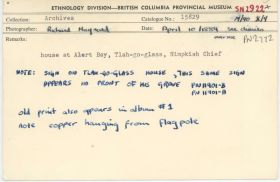 ETHNOLOGY DIVISION—BRITISH COLUMBIA PROVINCIAL MUSEUM SN2922
Collection: Archives Catalogue No: 15829
Photographer: Richard Maynard Date: April
Remarks:
PN2772
house at Alert Bay, Tlah-go-glass, Nimpkish Chief
NOTE: SIGN ON TLAH-GO-GLASS HOUSE, THIS SAME SIGN
APPEARS IN FRONT OF HIS GRAVE PN 11901-B
PN 11901-A
old print also appears in album #1
note copper hanging from flagpole